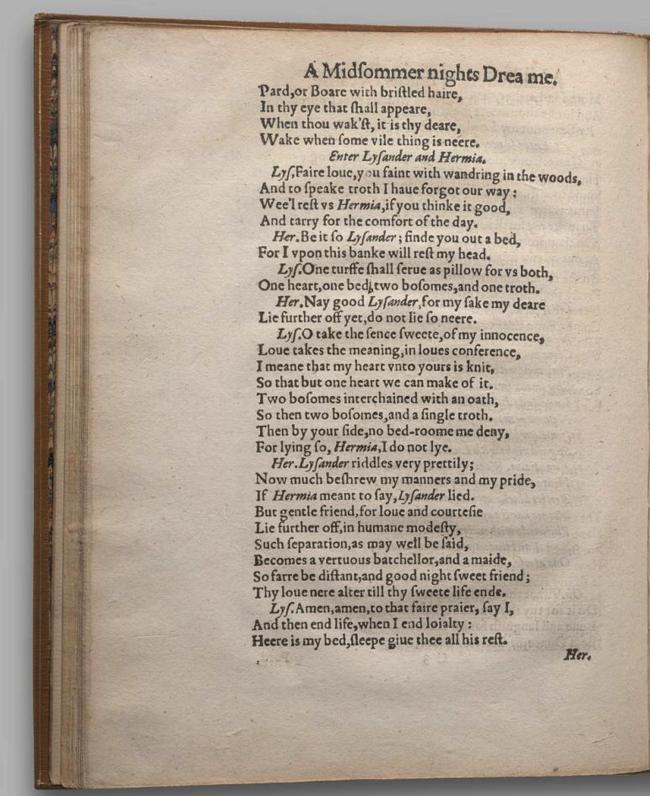 A Midſommer nights Dreame.
Pard, or Boare with briſtled haire,
In thy eye that ſhall appeare,
When thou wak'ſt, it is thy deare,
Wake when ſome vile thing is neere.
Enter Lyſander and Hermia.
Lyſ. Faire loue, you faint with wandring in the woods,
And to ſpeake troth I haue forgot our way:
Wee'l reſt vs Hermia, if you thinke it good,
And tarry for the comfort of the day.
Her. Be it ſo Lyſander; finde you out a bed,
For I vpon this banke will reſt my head.
Lyſ. One turffe ſhall ſerue as pillow for vs both,
One heart, one bed, two boſomes, and one troth.
Her. Nay good Lyſander, for my ſake my deare
Lie further off yet, do not lie ſo neere.
Lyſ. O take the ſence ſweete, of my innocence,
Loue takes the meaning, in loues conference,
I meane that my heart vnto yours is knit,
So that but one heart we can make of it.
Two boſomes interchained with an oath,
So then two boſomes, and a ſingle troth.
Then by your ſide, no bed-roome me deny,
For lying ſo, Hermia, I do not lye.
Her. Lyſander riddles very prettily;
Now much beſhrew my manners and my pride,
If Hermia meant to ſay, Lyſander lied.
But gentle friend, for loue and courteſie
Lie further off, in humane modeſty,
Such ſeparation, as may well be ſaid,
Becomes a vertuous batchellor, and a maide,
So farre be diſtant, and good night ſweet friend;
Thy loue nere alter till thy ſweete life ende.
Lyſ. Amen, amen, to that faire praier, ſay I,
And then end life, when I end loialty:
Heere is my bed, ſleepe giue thee all his reſt.
Her.